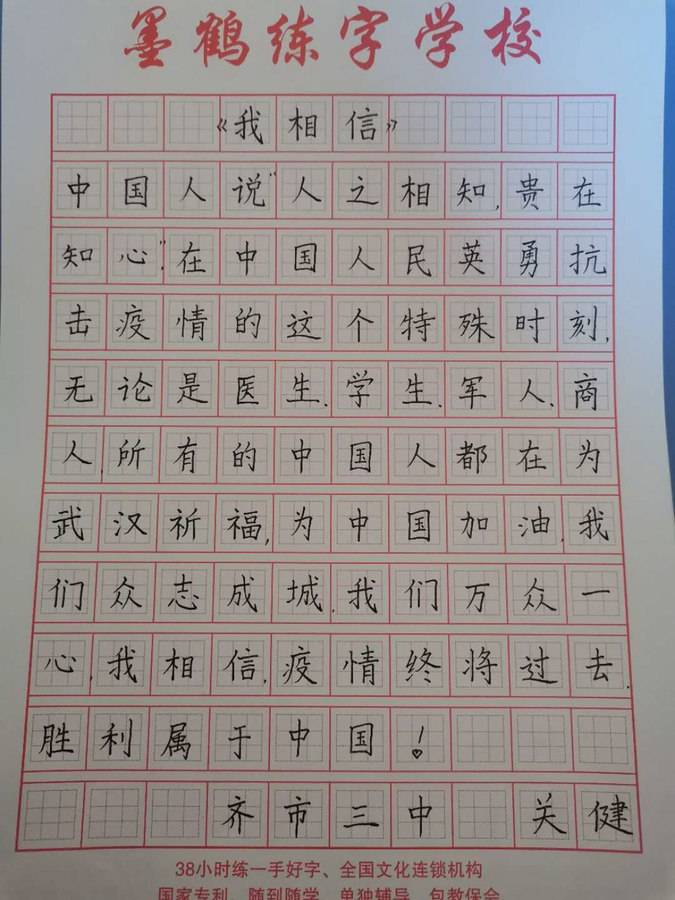 墨鹤练字学校
《我相信》
中国人说"人之相知,贵在
知心".在中国人民英勇抗
击疫情的这个特殊时刻,
无论是医生.学生.军人.商
人.所有的中国人都在为
武汉祈福,为中国加油.我
们众志成城.我们万众一
心.我相信.疫情终将过去.
胜利属于中国!
齐市三中 关健
38小时练一手好字、全国文化连锁机构
国家专利、随到随学、单独辅导、包教保会